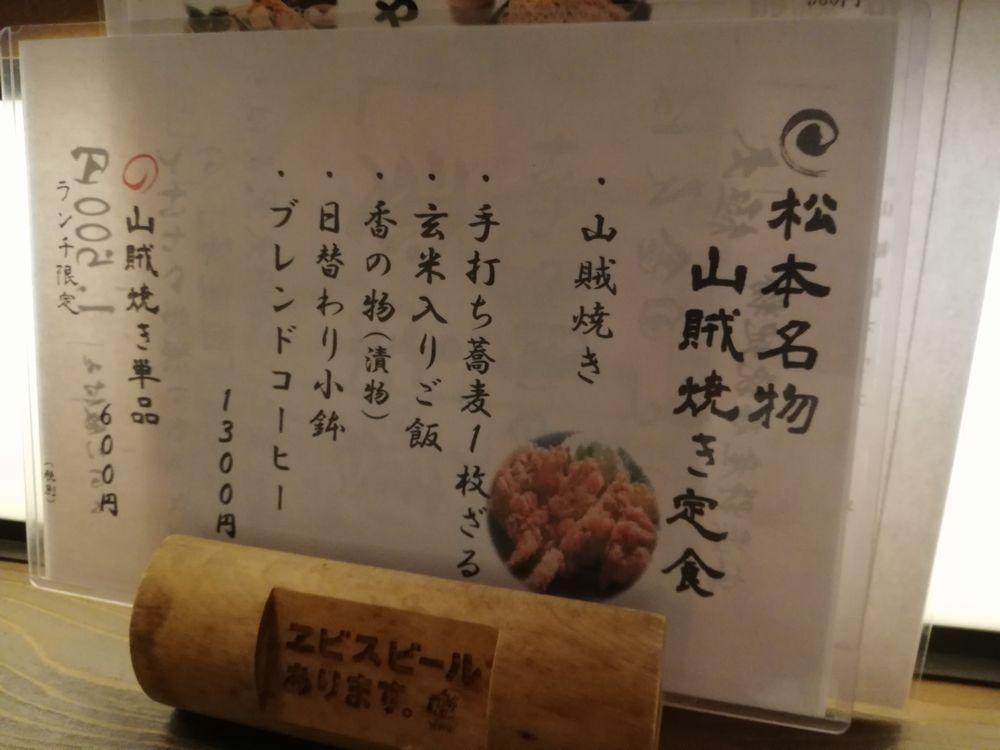 松本名物
山賊焼き定食
・山賊焼き
・手打ち蕎麦1枚ざる
・玄米入りご飯
・香の物(漬物)
・日替わり小鉢
・ブレンドコーヒー
1300円
山賊焼き単品
600円
ランチ限定
(税別)
ヱビスビール
あります。